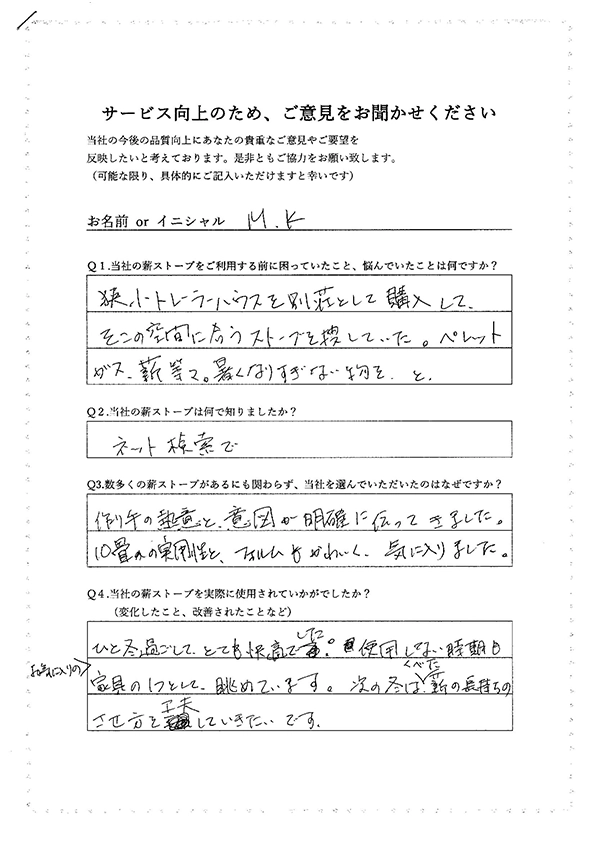 サービス向上のため、ご意見をお聞かせください
当社の今後の品質向上にあなたの貴重なご意見やご要望を
反映したいと考えております。是非ともご協力をお願い致します。
（可能な限り、具体的にご記入いただけますと幸いです）
お名前 or イニシャル M.K
Q1.当社の薪ストーブをご利用する前に困っていたこと、悩んでいたことは何ですか？
狭小トレーラーハウスを別荘として購入して、
そこの空間に合うストーブを捜していた。ペレット
ガス、薪等々。暑くなりすぎない物を、と、
Q2.当社の薪ストーブは何で知りましたか？
ネット検索で
Q3.数多くの薪ストーブがあるにも関わらず、当社を選んでいただいたのはなぜですか？
作り手の熱意と、意図が明確に伝ってきました。
10畳用の実用性と、フォルムもかわいく、気に入りました。
Q4.当社の薪ストーブを実際に使用されていかがでしたか？
（変化したこと、改善されたことなど）
ひと冬過ごして、とても快適でした。使用しない時期も
お気に入りの家具の1つとして、眺めています。次の冬は、くべた薪の長持ちの
させ方を工夫していきたいです。